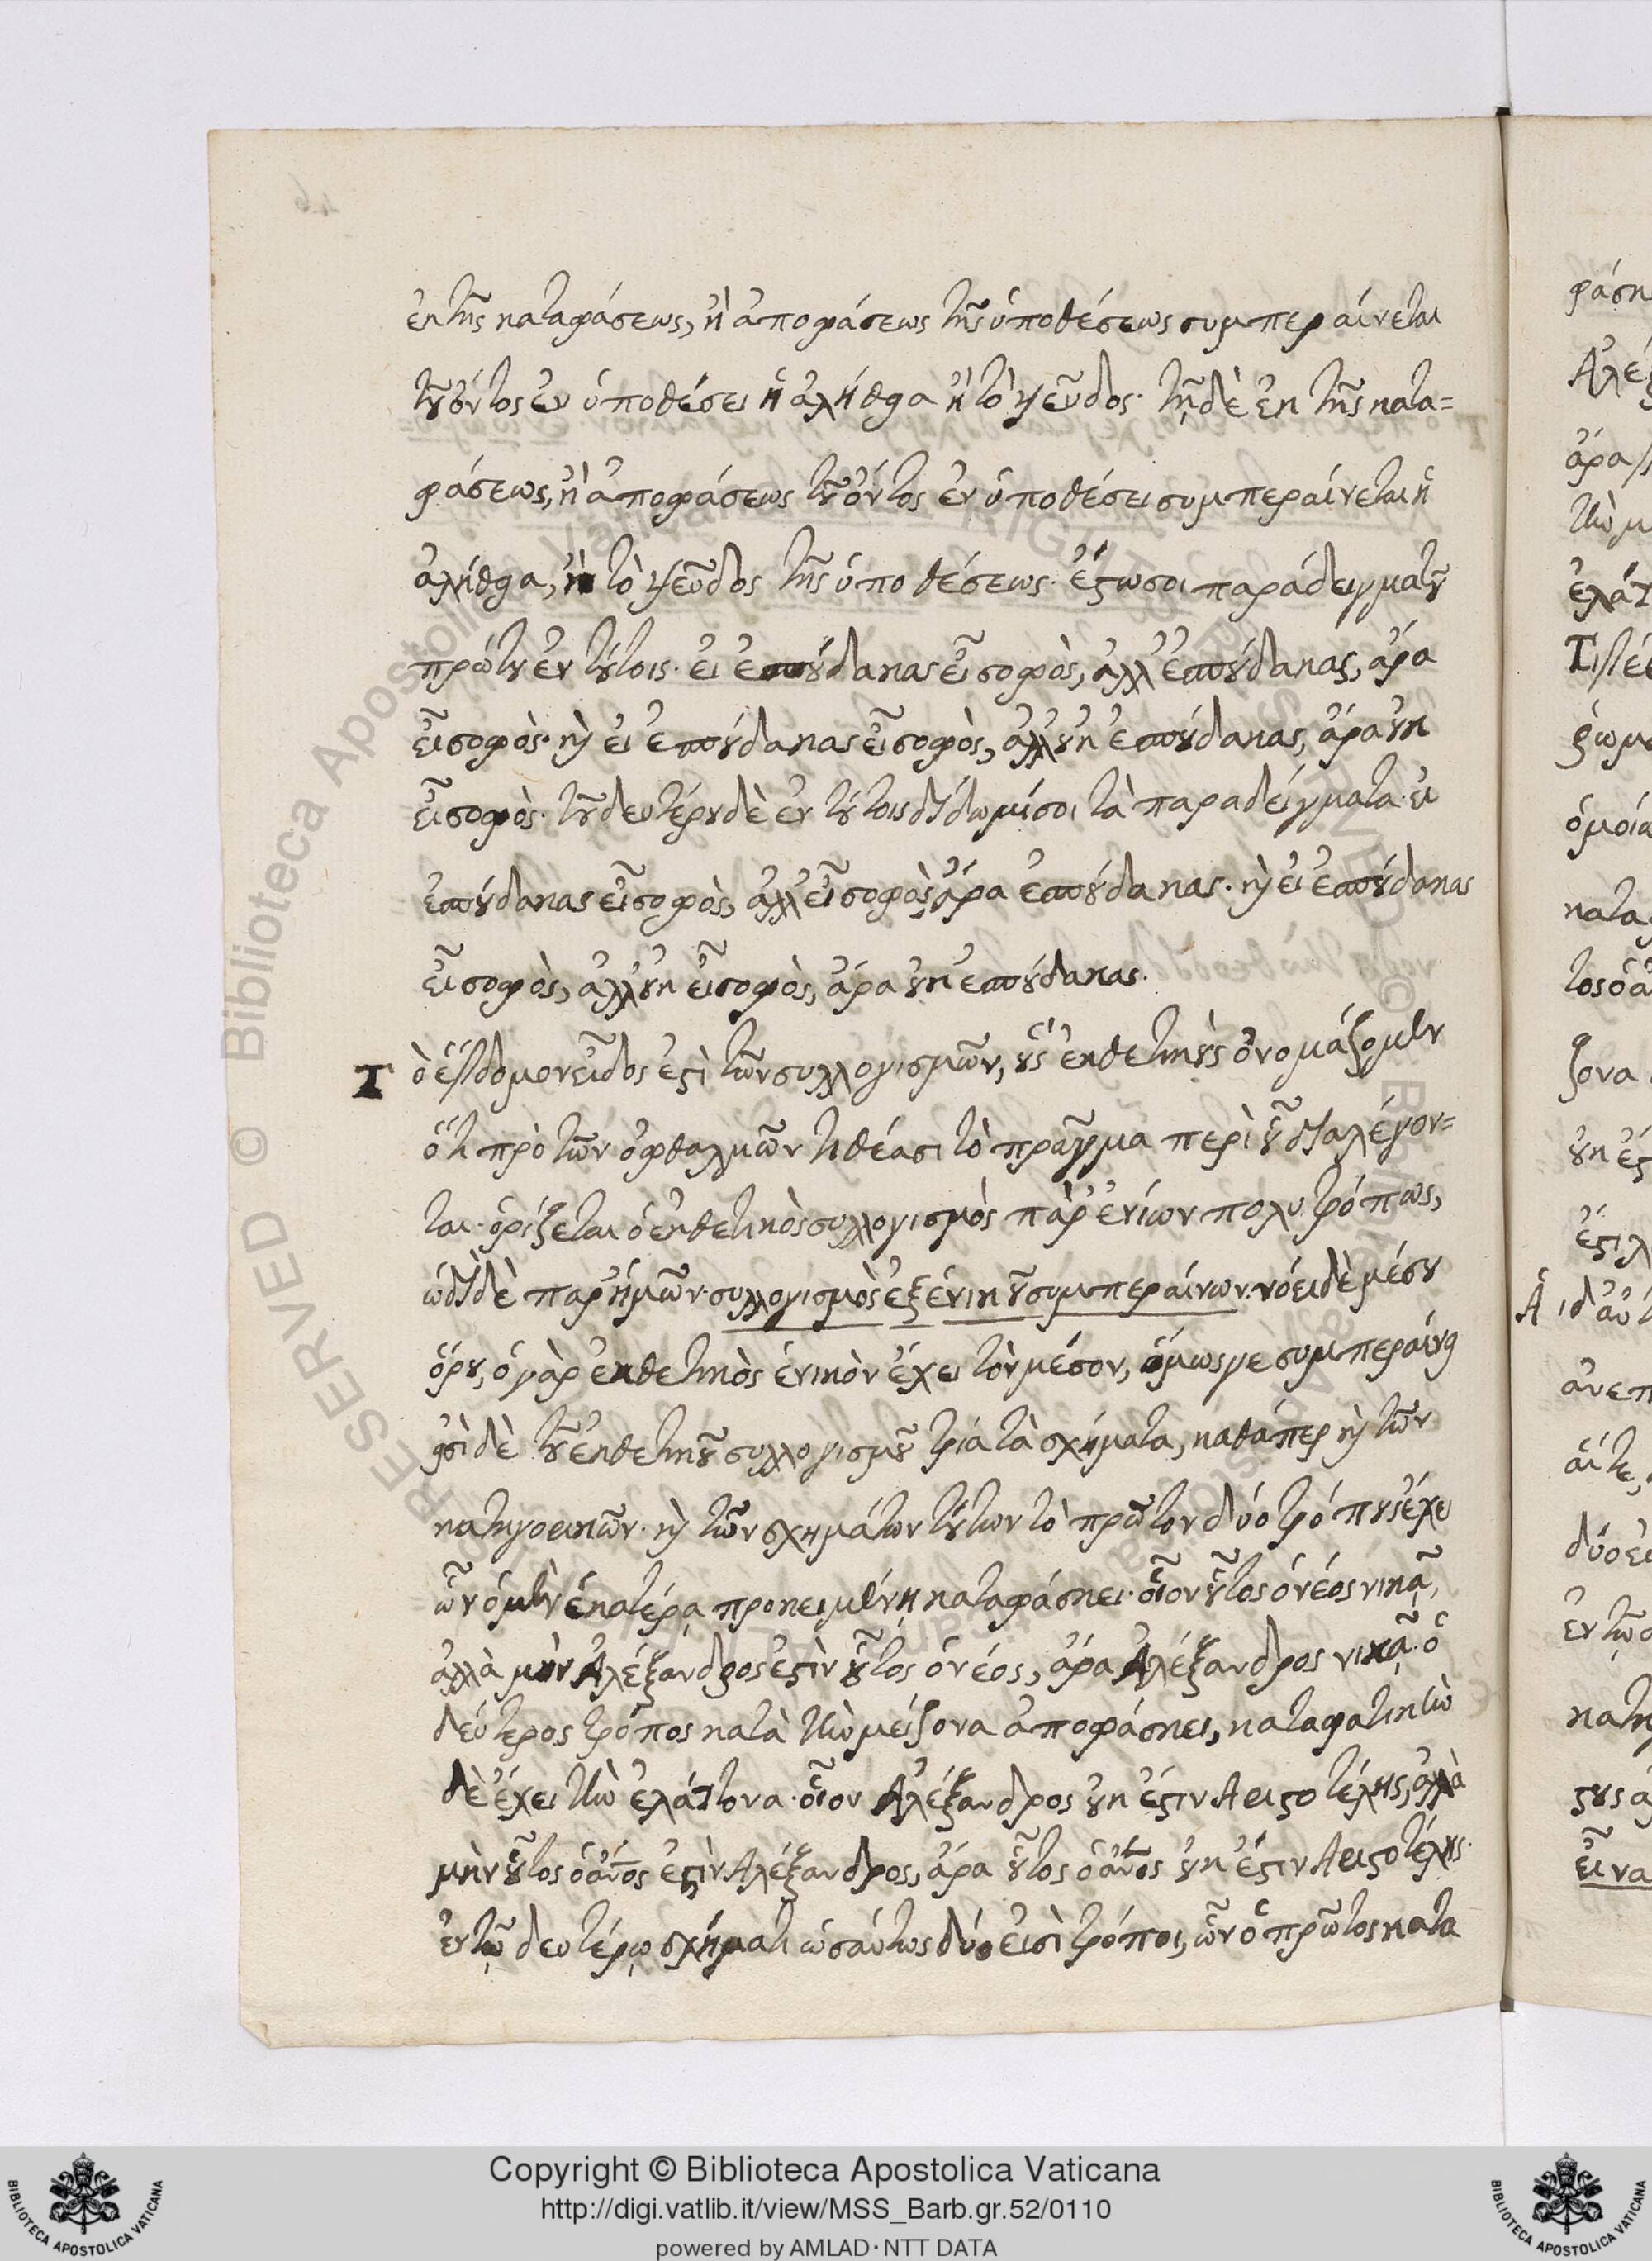 ἐκ τῆς καταφάσεως, ἢ ἀποφάσεως τῆς ὑποθέσεως συμπεραίνεται
τοῦ ὄντος ἐν ὑποθέσει ἡ ἀλήθεια ἢ τὸ ψεῦδος· τῇ δὲ ἐκ τῆς κατα=
φάσεως, ἢ ἀποφάσεως τοῦ ὄντος ἐν ὑποθέσει συμπεραίνεται ἡ
ἀλήθεια, ἢ τὸ ψεῦδος τῆς ὑποθέσεως. ἔστωσοι παράδειγμα τοῦ
πρώτου ἐν τούτοις. εἰ ἐσπούδακας εἶ σοφὸς, ἀλλ' ἐσπούδακας, ἄρα
εἶ σοφὸς. καὶ εἰ ἐσπούδακας εἶ σοφὸς, ἀλλ' οὐκ ἐσπούδακας, ἄρα οὐκ
εἶ σοφὸς. τοῦ δευτέρου δὲ ἐν τούτοις δίδωμί σοι τὰ παραδείγματα. εἰ
ἐσπούδακας εἶ σοφὸς, ἀλλ' εἶ σοφὸς, ἄρα ἐσπούδακας. καὶ εἰ ἐσπούδακας
εἶ σοφὸς, ἀλλ' οὐκ εἶ σοφὸς, ἄρα οὐκ ἐσπούδακας.
Τὸ ἕβδομον εἶδος ἐστὶ τῶν συλλογισμῶν, οὓς ἐκθετικοὺς ὀνομάζομεν
ὅτι πρὸ τῶν ὀφθαλμῶν τιθέασι τὸ πρᾶγμα περὶ οὗ διαλέγον=
ται. ὁρίζεται ὁ ἐκθετικὸς συλλογισμὸς παρ' ἐνίων πολυτρόπως,
ὡδὶ δὲ παρ' ἡμῶν. συλλογισμὸς ἐξ ἑνικοῦ συμπεραίνων. νόει δὲ μέσου
ὅρου, ὁ γὰρ ἐκθετικὸς ἑνικὸν ἔχει τὸν μέσον, ὅμως γε συμπεραίνει
εἰσὶ δὲ τοῦ ἐκθετικοῦ συλλογισμοῦ τρία τὰ σχήματα, καθάπερ καὶ τῶν
κατηγορικῶν. καὶ τῶν σχημάτων τούτων τὸ πρῶτον δύο τρόπους ἔχει
ὧν ὁ μὲν ἑκατέρᾳ προκειμένῃ καταφάσκει. οἷον οὗτος ὁ νέος νικᾷ,
ἀλλὰ μὴν Ἀλέξανδρος ἐστὶν οὗτος ὁ νέος, ἄρα Ἀλέξανδρος νικᾷ. ὁ
δεύτερος τρόπος κατὰ τὴν μείζονα ἀποφάσκει, καταφατικὴν
δὲ ἔχει τὴν ἐλάττονα. οἷον Ἀλέξανδρος οὐκ ἔστιν Ἀριστοτέλης, ἀλλὰ
μὴν οὗτος ὁ ἄνος ἐστὶν Ἀλέξανδρος, ἄρα οὗτος ὁ ἄνος οὐκ ἔστιν Ἀριστοτέλης.
ἐν τῷ δευτέρῳ σχήματι ὡσαύτως δύο εἰσὶ τρόποι, ὧν ὁ πρῶτος κατα
Copyright © Biblioteca Apostolica Vaticana
http://digi.vatlib.it/view/MSS_Barb.gr.52/0110
powered by AMLAD·NTT DATA